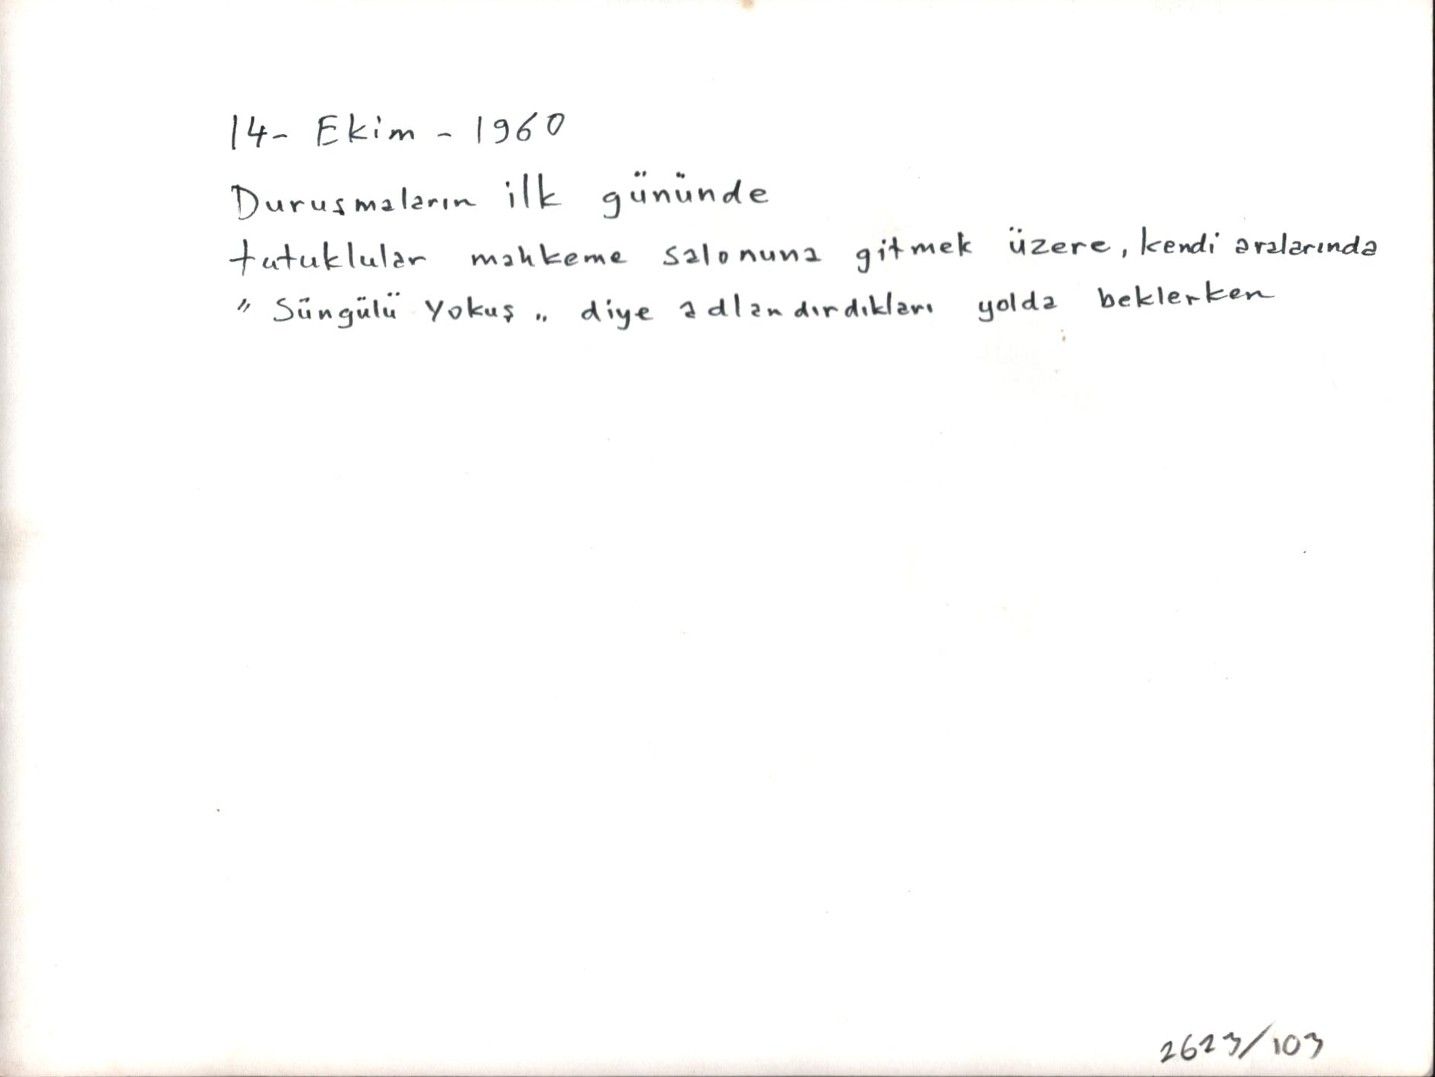 14- Ekim - 1960
Duruşmaların ilk gününde
tutuklular mahkeme salonuna gitmek üzere, kendi aralarında
" Süngülü Yokuş „ diye adlandırdıkları yolda beklerken
2623/103